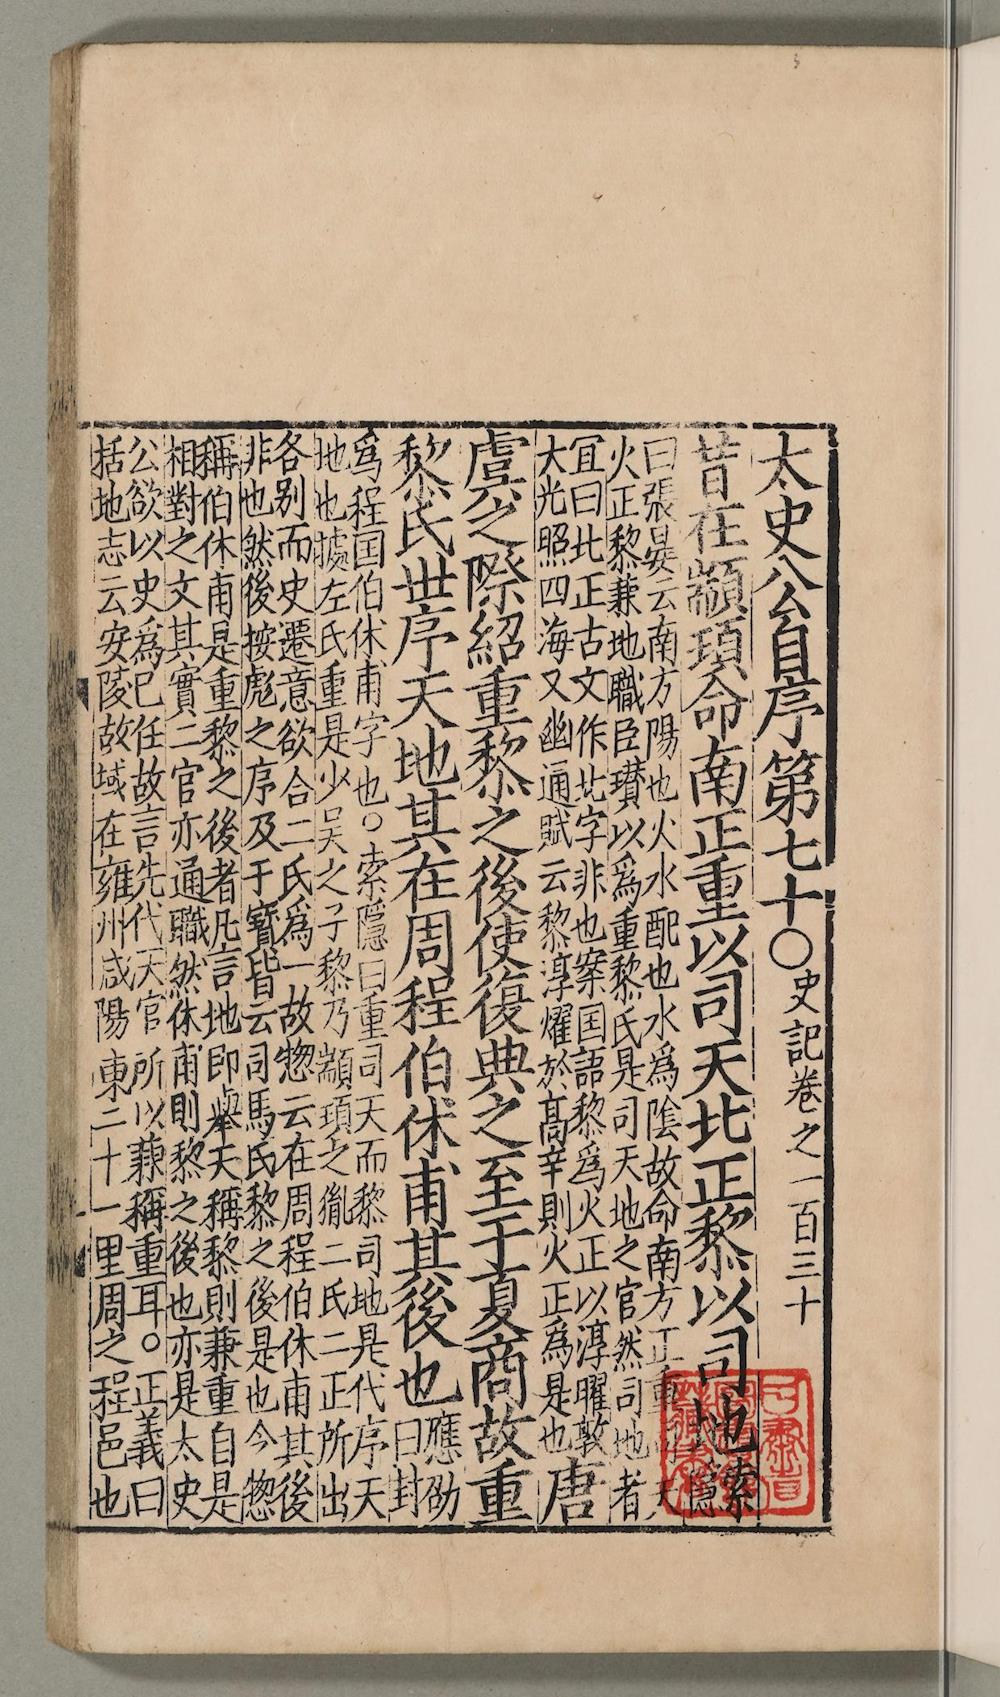 太史公自序第七十〇史記卷之一百三十
昔在顓頊命南正重以司天北正黎以司地索隱
曰張晏云南方陽也火水配也水為陰故命南方正重
火正黎兼地職臣瓚以為重黎氏是司天地之官然司地者
宜曰北正古文作北字非也案国語黎為火正以淳曜敦
大光照四海又幽通賦云黎淳耀於高辛則火正為是也唐
虞之際紹重黎之後使復典之至于夏商故重
黎氏世序天地其在周程伯休甫其後也應劭
曰封
為程国伯休甫字也〇索隱曰重司天而黎司地是代序天
地也據左氏重是少昊之子黎乃顓頊之胤二氏二正所出
各別而史遷意欲合二氏為一故惣云在周程伯休甫其後
非也然後按彪之序及于寶皆云司馬氏黎之後是也今惣
稱伯休甫是重黎之後者凡言地即舉天稱黎則兼重自是
相對之文其實二官亦通職然休甫則黎之後也亦是太史
公欲以史為己任故言先代天官所以兼稱重耳。正義曰
括地志云安陵故城在雍州咸陽東二十一里周之程邑也